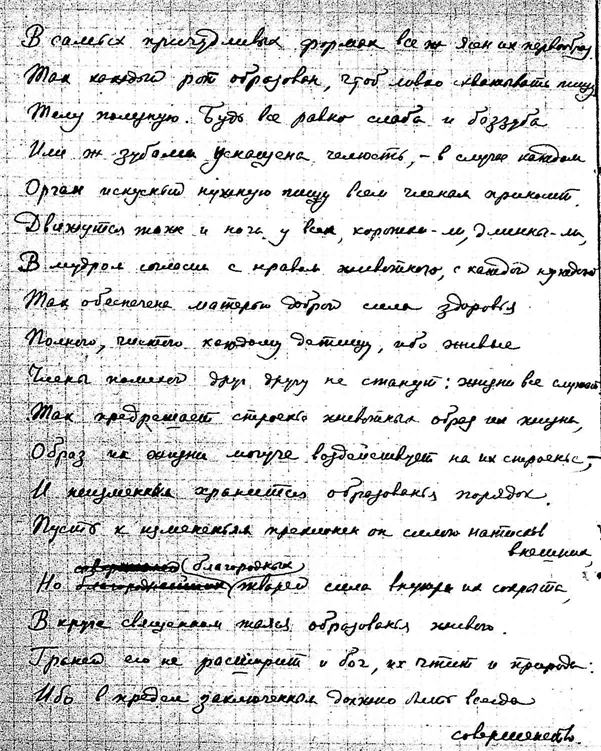 В самых причудливых формах все ж ясен их первообраз
Так каждый рот образован, чтоб ловко схватывать пищу
Телу полезную. Будь все равно слаба и беззуба
Или ж зубами уснащена челюсть, – в случае каждом
Орган искусный нужную пищу всем членам приносит.
Движутся также и ноги у всех, коротки-ль, длинны-ль,
В мудром согласьи с нравом животного, с каждой нуждою
Так обеспечена матерью доброй сила здоровья
Полного, чистого каждому детищу, ибо живые
Члены помехой друг другу не станут: жизни все служат.
Так предрешает строенье животных образ их жизни,
Образ их жизни могуче воздействует на их строенье, –
И неизменным хранится образованья порядок.
Пусть к измененьям преклонен он силою натисков
внешних,
благородных
Но тварей сила внутри их сокрыта,
В круге священном таясь образованья живого.
Граней его не расширит и бог, их чтит и природа:
Ибо в предел заключенным должно быть всегда
совершенство.